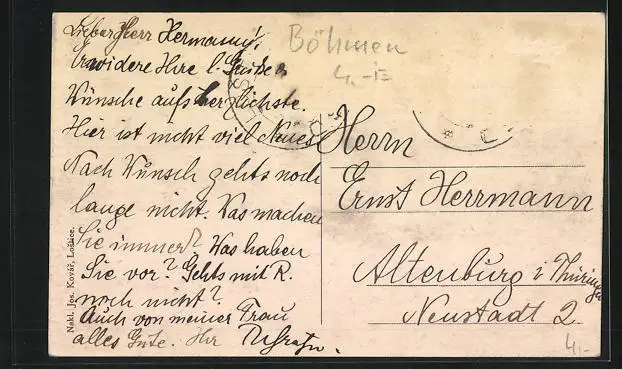 Lieber Herr Hermann!
Erwidere Ihre l. Grüße u
Wünsche aufs herzlichste.
Hier ist nicht viel Neues
Nach Wunsch gehts noch
lange nicht. Was machen
Sie immer? Was haben
Sie vor? Gehts mit R.
noch nicht?
Auch von meiner Frau
alles Gute. Ihr
Böhmen
4.-
Herrn
Ernst Herrmann
Altenburg i. Thüringen
Neustadt 2.
4.-
Nakl. Jos. Kovář, Loštice.